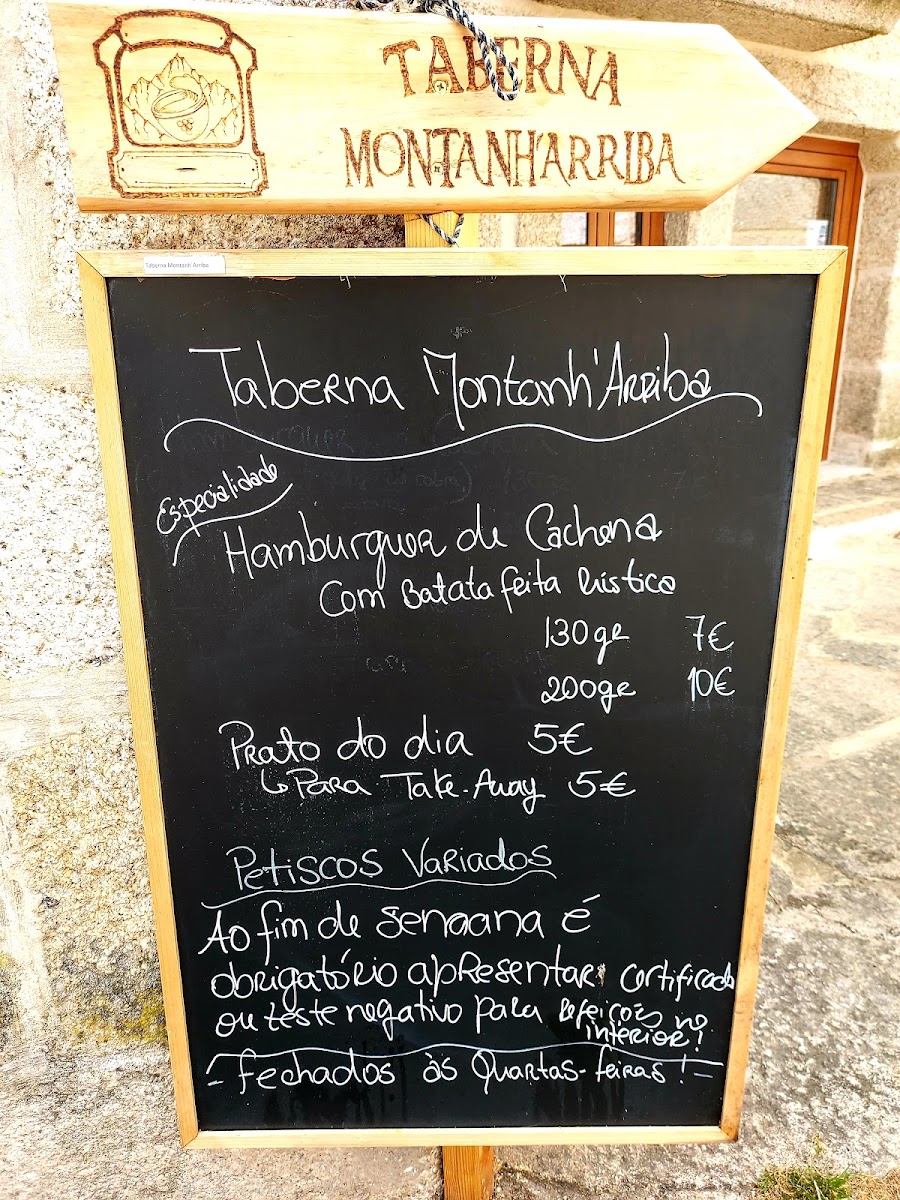 TABERNA
MONTANH'ARRIBA
Taberna Montanh'Arriba
Taberna Montanh'Arriba
Especialidade
Hamburguer de Cachena
com Batata frita Rústica
130gr 7€
200gr 10€
Prato do dia 5€
↳ Para Take-Away 5€
Petiscos Variados
Ao fim de semana é
obrigatório apresentar certificado
ou teste negativo para refeições no
interior!
- Fechados às Quartas-feiras! -